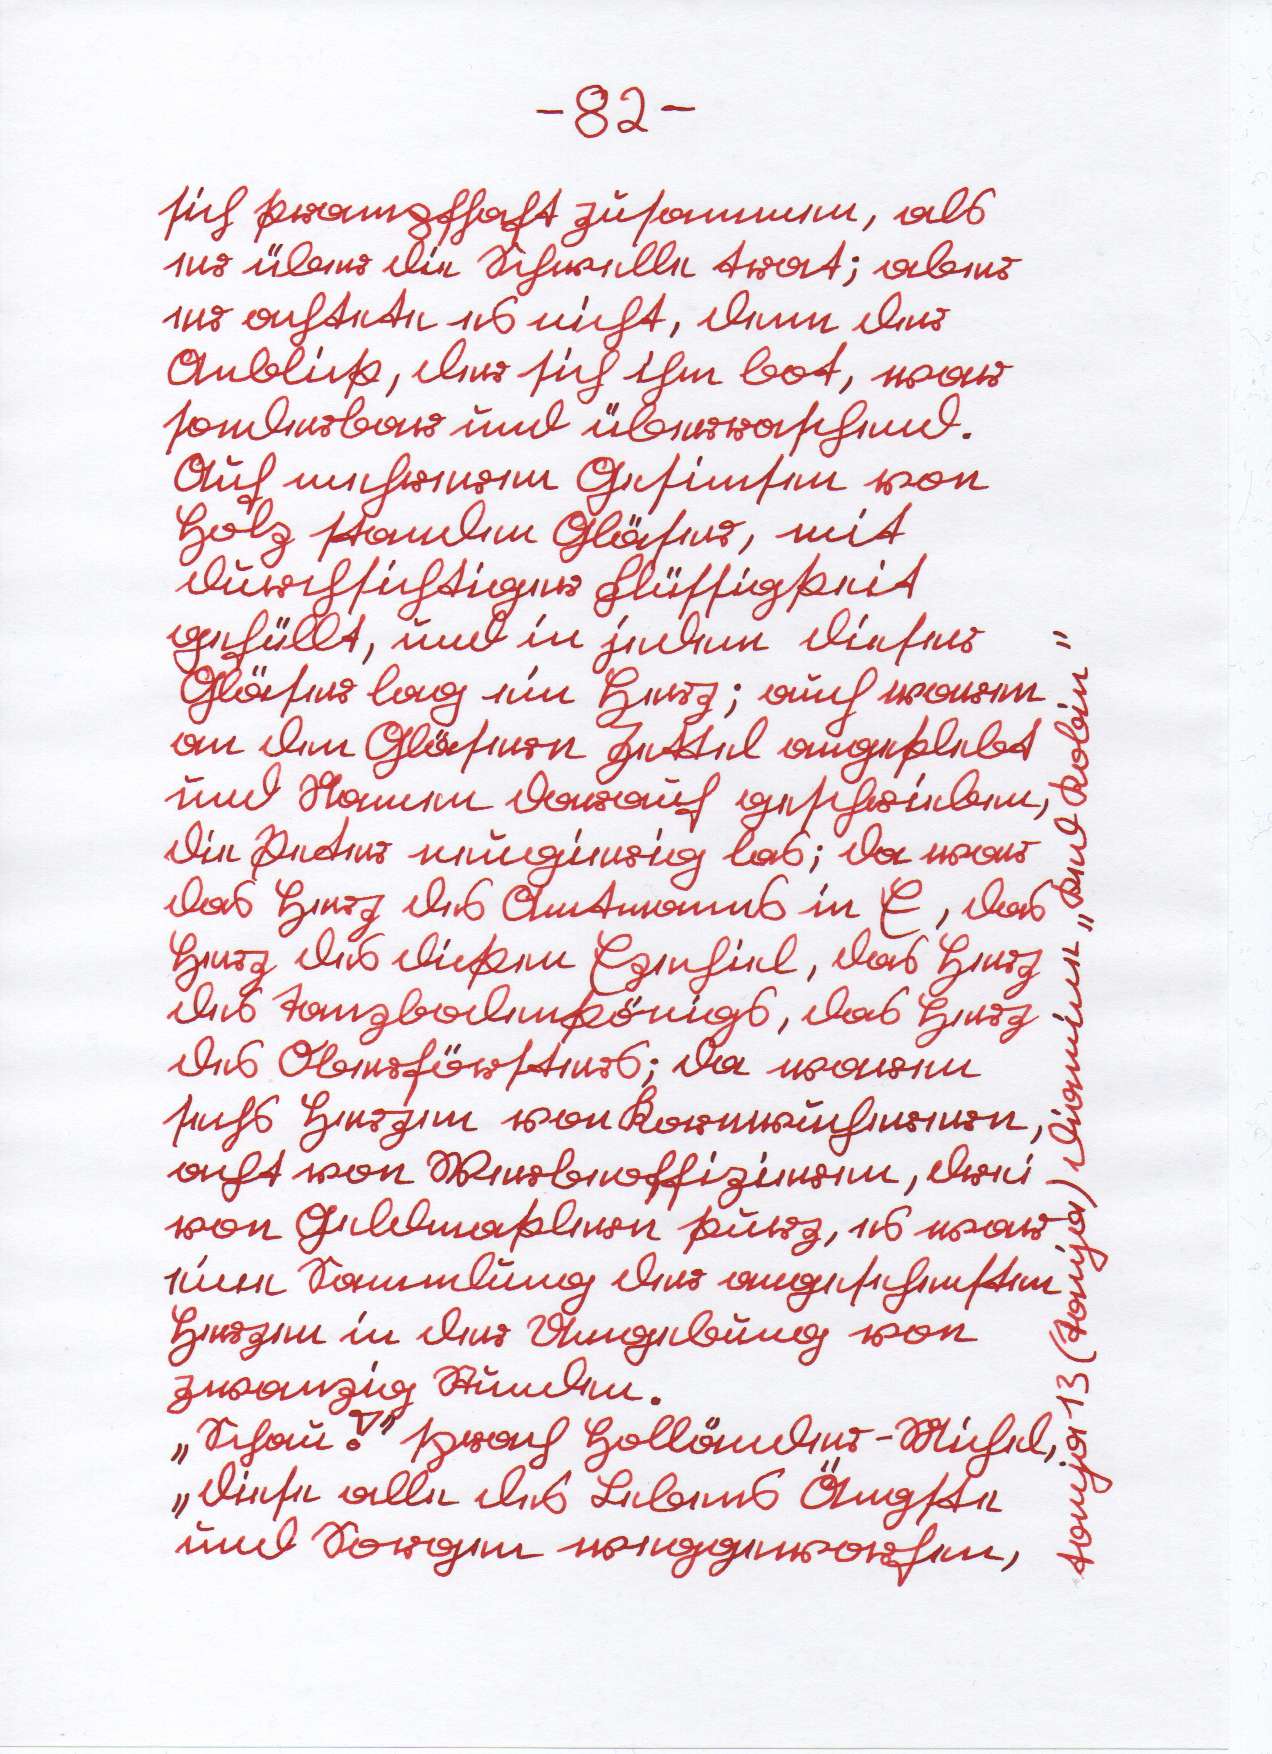 -82-
sich krampfhaft zusammen, als
er über die Schwelle trat; aber
er achtete es nicht, denn der
Anblick, der sich ihm bot, war
sonderbar und überraschend.
Auf mehreren Gesimsen von
Holz standen Gläser, mit
durchsichtiger Flüssigkeit
gefüllt, und in jedem dieser
Gläser lag ein Herz; auch waren
an den Gläsern Zettel angeklebt
und Namen darauf geschrieben,
die Peter neugierig las; da war
das Herz des Amtmanns in E, das
Herz des dicken Ezechiel, das Herz
des Tanzbodenkönigs, das Herz
des Oberförsters; da waren
sechs Herzen von Kornwucherern,
acht von Werbeoffizieren, drei
von Geldmaklern kurz, es war
eine Sammlung der angesehensten
Herzen in der Umgebung von
zwanzig Stunden.
„Schau!" sprach Holländer-Michel,
„diese alle des Lebens Ängste
und Sorgen weggeworfen,
tanja 13 (Tanja) Diamine „Red Robin"